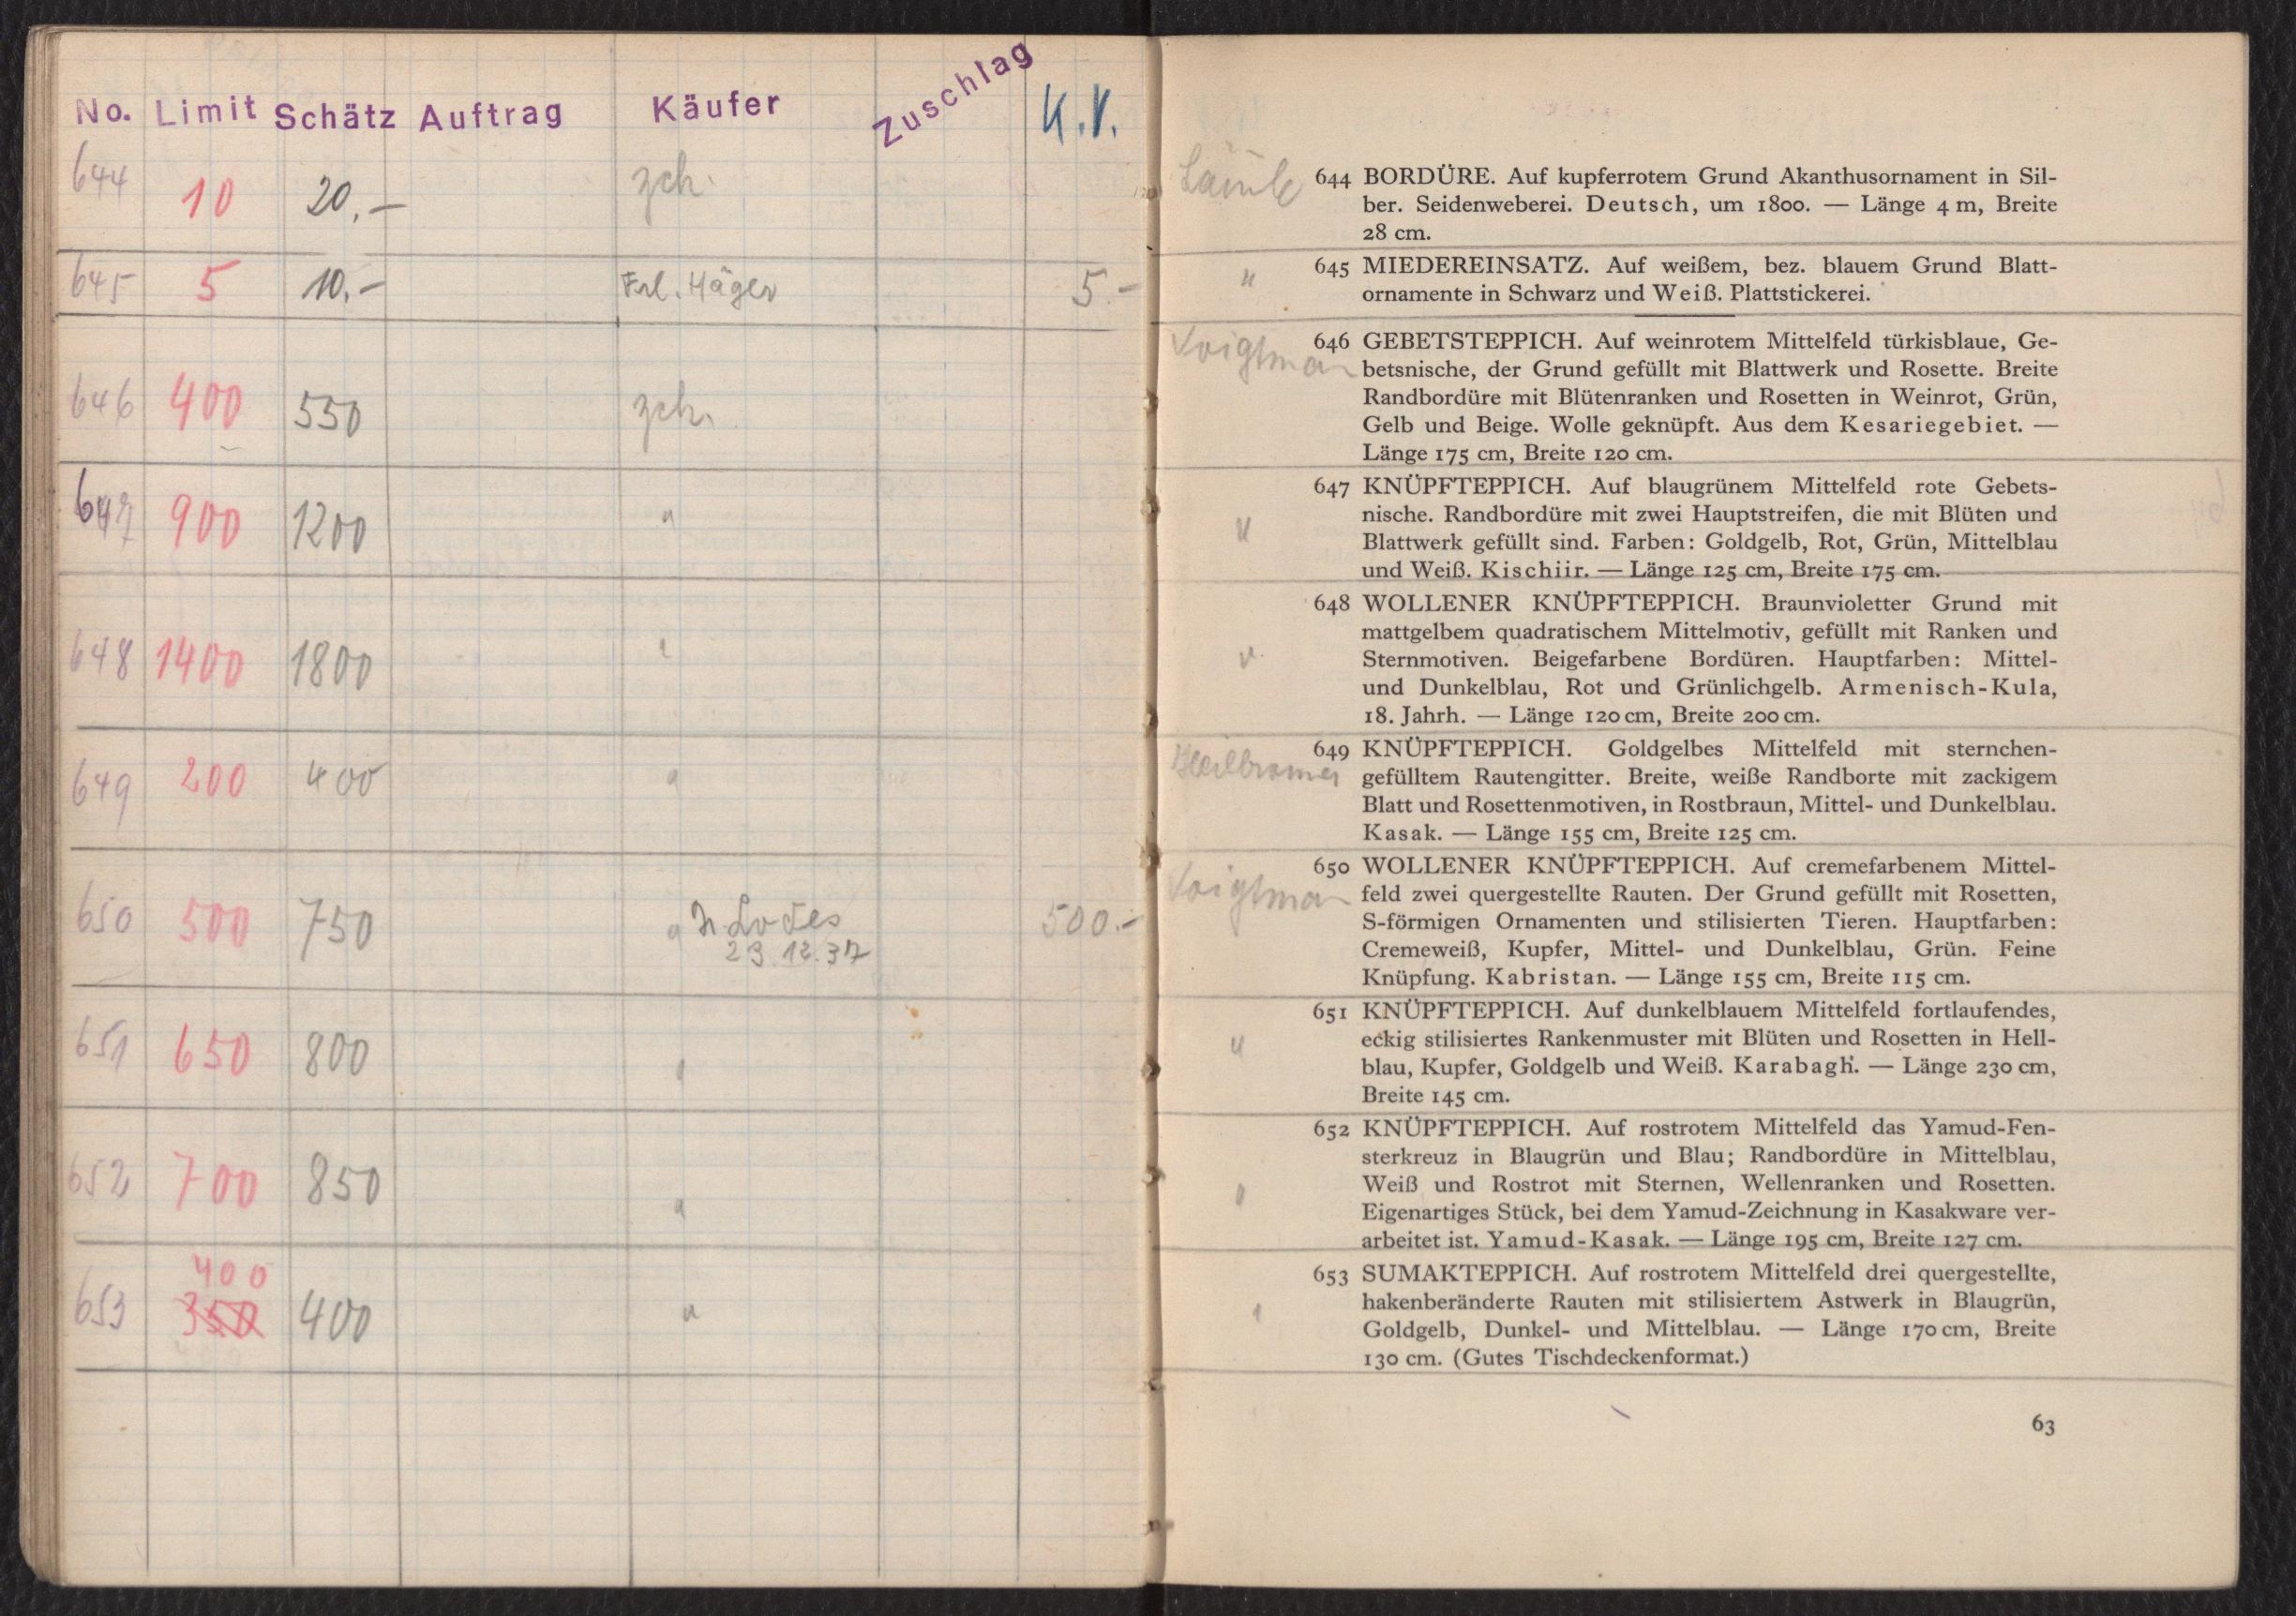 No. Limit Schätz Auftrag Käufer Zuschlag K.V.
644 10 20,- zch.
645 5 10,- Frl. Häger 5.-
646 400 550 zch.
647 900 1200 "
648 1400 1800 "
649 200 400 "
650 500 750 " 500.-
23.12.37
651 650 800 "
652 700 850 "
400
653 350 400 "
644 BORDÜRE. Auf kupferrotem Grund Akanthusornament in Sil-
ber. Seidenweberei. Deutsch, um 1800. — Länge 4 m, Breite
28 cm.
" 645 MIEDEREINSATZ. Auf weißem, bez. blauem Grund Blatt-
ornamente in Schwarz und Weiß. Plattstickerei.
Voigtman 646 GEBETSTEPPICH. Auf weinrotem Mittelfeld türkisblaue, Ge-
betsnische, der Grund gefüllt mit Blattwerk und Rosette. Breite
Randbordüre mit Blütenranken und Rosetten in Weinrot, Grün,
Gelb und Beige. Wolle geknüpft. Aus dem Kesariegebiet. —
Länge 175 cm, Breite 120 cm.
647 KNÜPFTEPPICH. Auf blaugrünem Mittelfeld rote Gebets-
nische. Randbordüre mit zwei Hauptstreifen, die mit Blüten und
" Blattwerk gefüllt sind. Farben: Goldgelb, Rot, Grün, Mittelblau
und Weiß. Kischiir. — Länge 125 cm, Breite 175 cm.
648 WOLLENER KNÜPFTEPPICH. Braunvioletter Grund mit
mattgelbem quadratischem Mittelmotiv, gefüllt mit Ranken und
" Sternmotiven. Beigefarbene Bordüren. Hauptfarben: Mittel-
und Dunkelblau, Rot und Grünlichgelb. Armenisch-Kula,
18. Jahrh. — Länge 120 cm, Breite 200 cm.
649 KNÜPFTEPPICH. Goldgelbes Mittelfeld mit sternchen-
gefülltem Rautengitter. Breite, weiße Randborte mit zackigem
Blatt und Rosettenmotiven, in Rostbraun, Mittel- und Dunkelblau.
Kasak. — Länge 155 cm, Breite 125 cm.
650 WOLLENER KNÜPFTEPPICH. Auf cremefarbenem Mittel-
Voigtman feld zwei quergestellte Rauten. Der Grund gefüllt mit Rosetten,
S-förmigen Ornamenten und stilisierten Tieren. Hauptfarben:
Cremeweiß, Kupfer, Mittel- und Dunkelblau, Grün. Feine
Knüpfung. Kabristan. — Länge 155 cm, Breite 115 cm.
651 KNÜPFTEPPICH. Auf dunkelblauem Mittelfeld fortlaufendes,
" eckig stilisiertes Rankenmuster mit Blüten und Rosetten in Hell-
blau, Kupfer, Goldgelb und Weiß. Karabagh. — Länge 230 cm,
Breite 145 cm.
652 KNÜPFTEPPICH. Auf rostrotem Mittelfeld das Yamud-Fen-
sterkreuz in Blaugrün und Blau; Randbordüre in Mittelblau,
" Weiß und Rostrot mit Sternen, Wellenranken und Rosetten.
Eigenartiges Stück, bei dem Yamud-Zeichnung in Kasakware ver-
arbeitet ist. Yamud-Kasak. — Länge 195 cm, Breite 127 cm.
653 SUMAKTEPPICH. Auf rostrotem Mittelfeld drei quergestellte,
" hakenberänderte Rauten mit stilisiertem Astwerk in Blaugrün,
Goldgelb, Dunkel- und Mittelblau. — Länge 170 cm, Breite
130 cm. (Gutes Tischdeckenformat.)
63